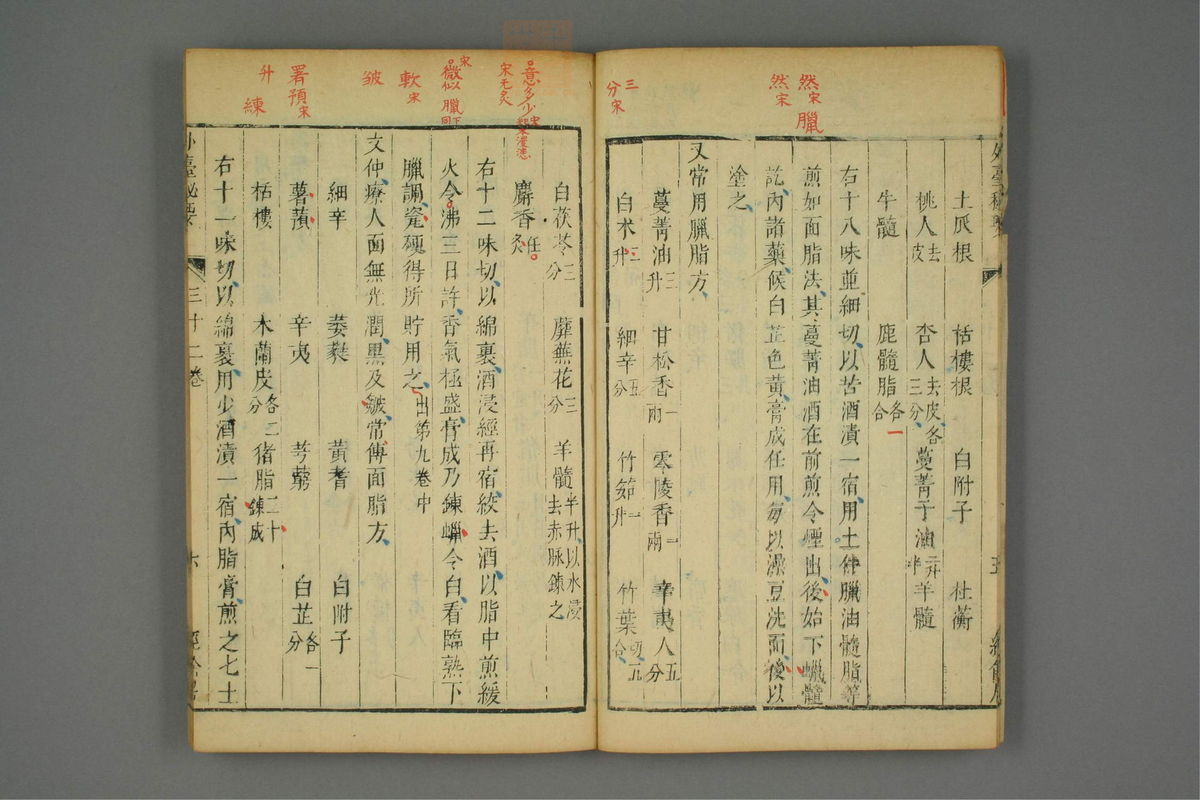 然宋 臘
然宋
三分宋
土瓜根 栝樓根 白附子 杜蘅
桃人去皮 杏人去皮各三分 蔓菁子油二升半 羊髓
牛髓 鹿髓脂各一合
右十八味並細切以苦酒漬一宿用上件臘油髓脂等
煎如面脂法其蔓菁油酒在前煎令煙出後始下蠟髓
訖內諸藥候白芷色黃膏成任用每以澡豆洗面後以
塗之
又常用臘脂方
蔓菁油三升 甘松香一兩 零陵香一兩 辛夷人五分
白朮二升 細辛五分 竹茹一升 竹葉切五合
意多少宋
宋無炙
微似宋 臘下同
軟宋
皴
署預宋
升 練
白茯苓三分 蘼蕪花三分 羊髓半升以水浸去赤脉鍊之
麝香任炙
右十二味切以綿裹酒浸經再宿絞去酒以脂中煎緩
火令沸三日許香氣極盛膏成乃鍊蠟令白看臨熟下
臘調㼽硬得所貯用之出第九卷中
文仲療人面無光潤黑及皺常傅面脂方
細辛 葳蕤 黃耆 白附子
薯蕷 辛夷 芎藭 白芷各一分
栝樓 木蘭皮各二分 猪脂二十鍊成
右十一味切以綿裹用少酒漬一宿內脂膏煎之七上
外臺秘要 三十二卷 六